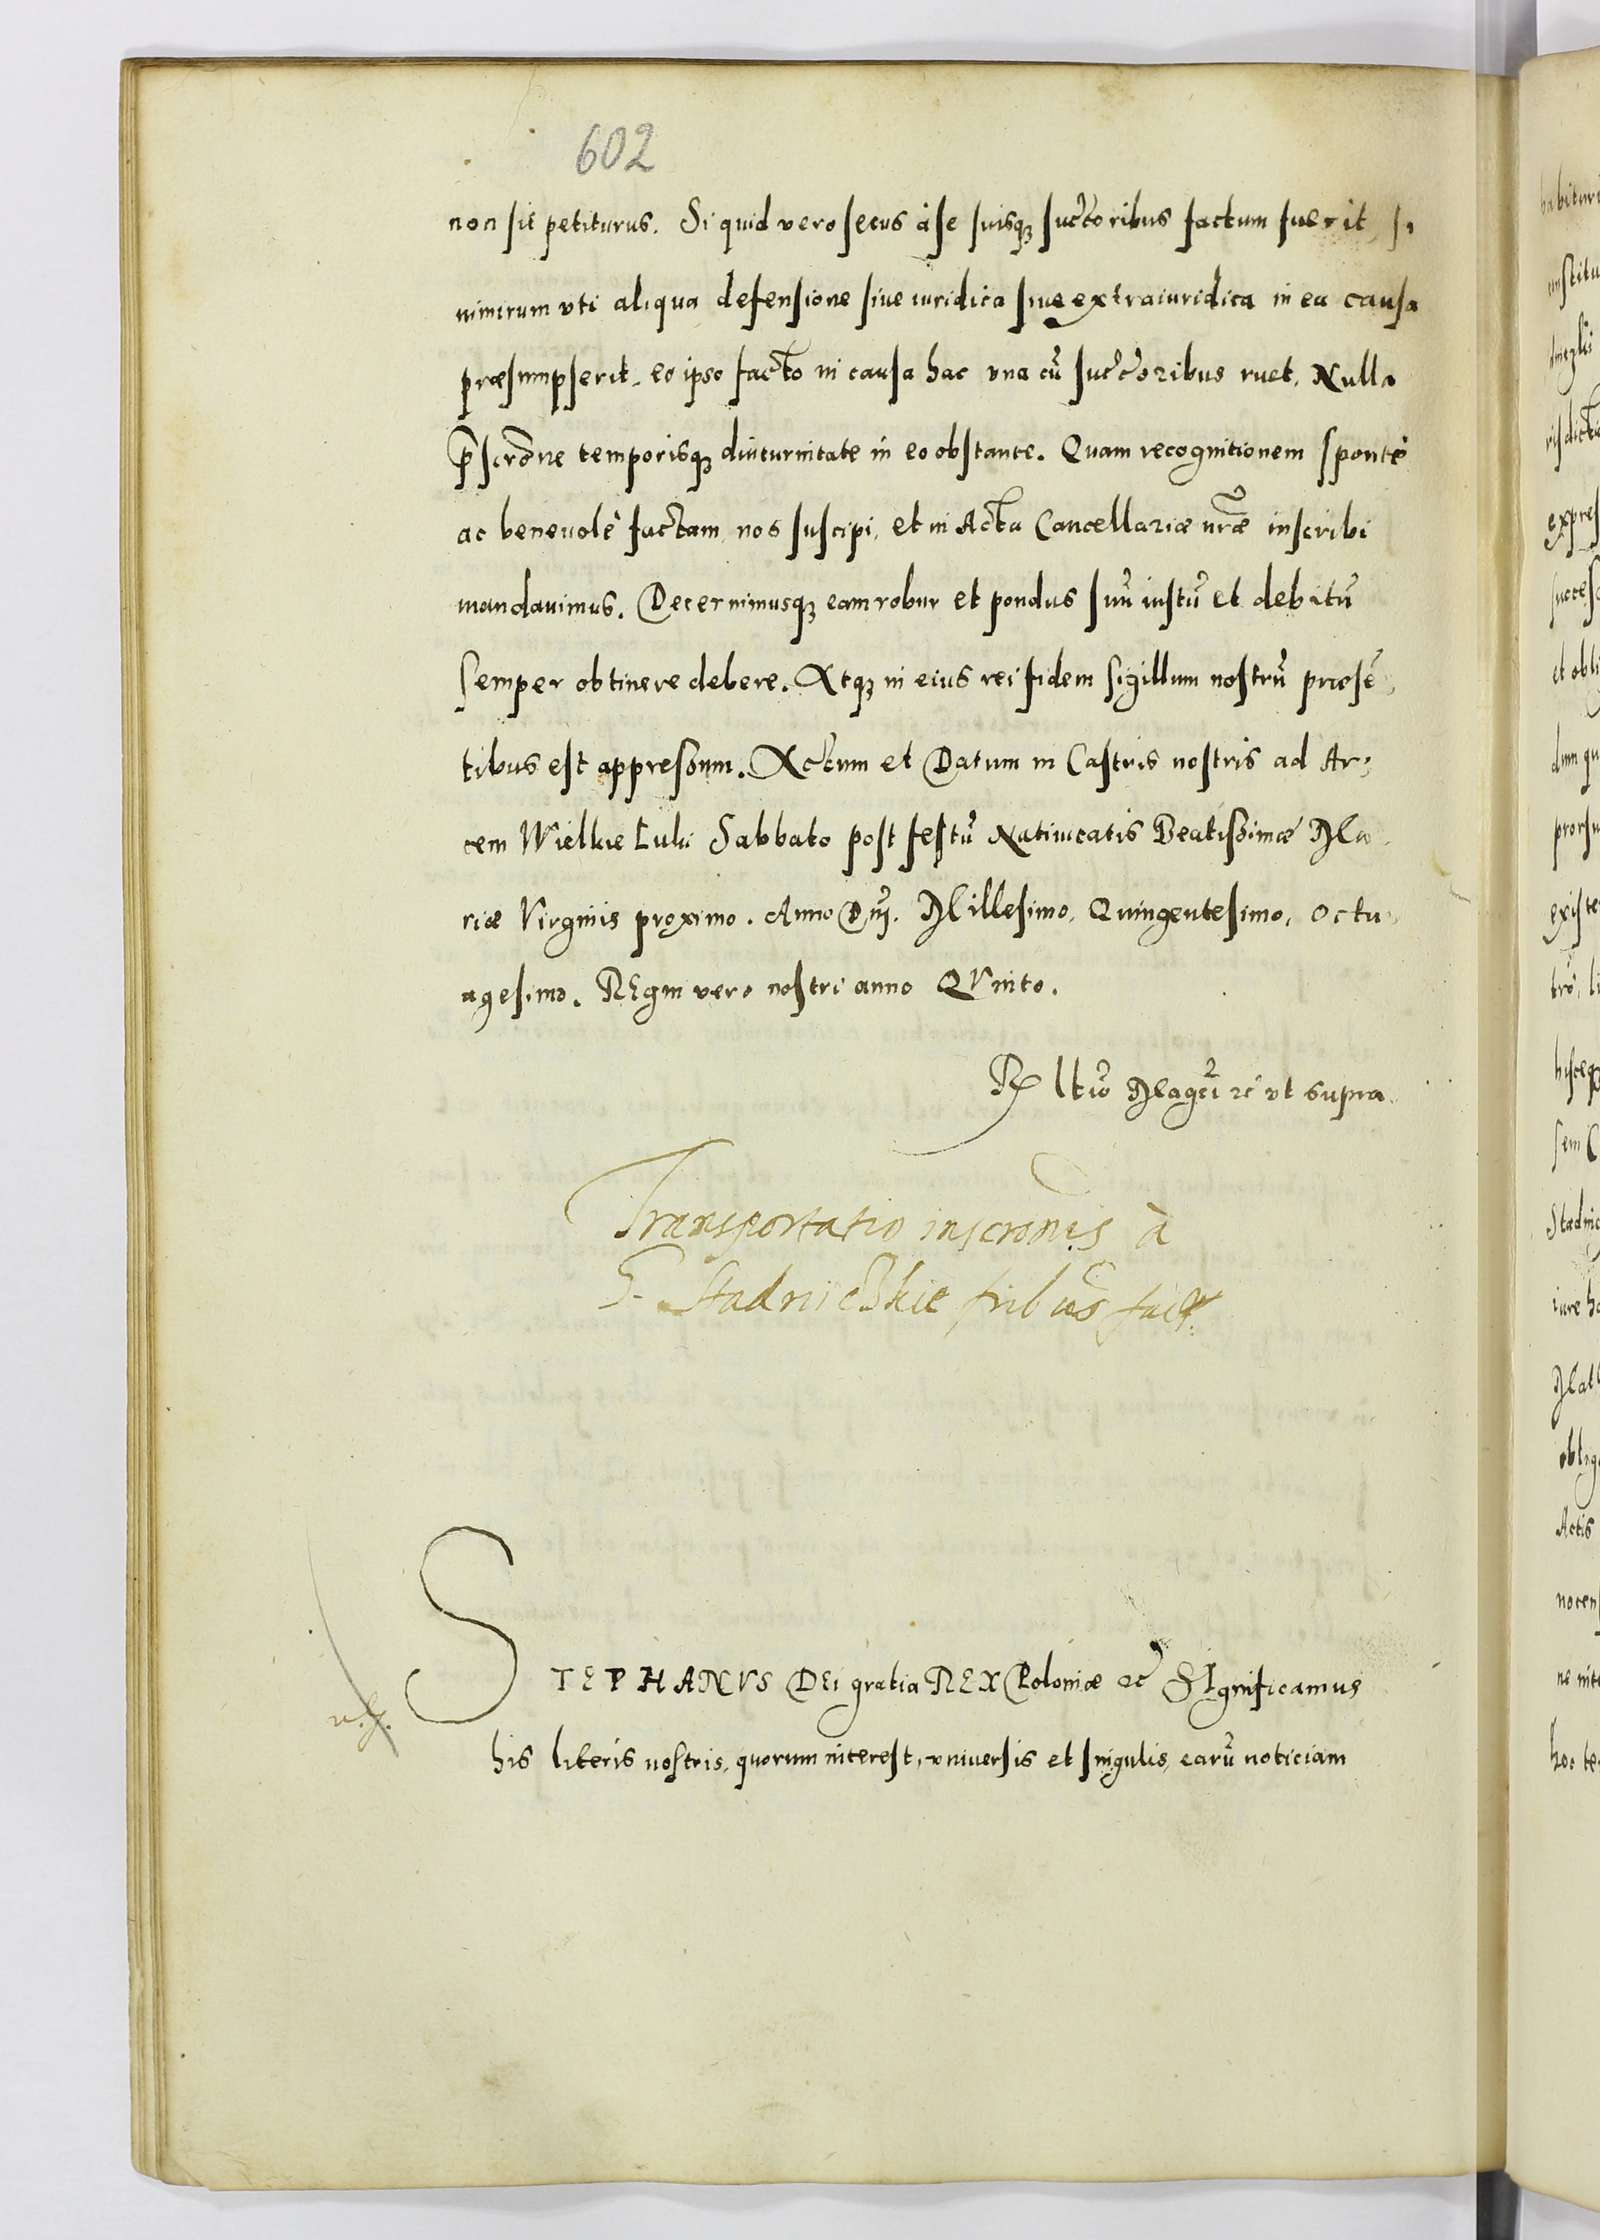 602
non sit petiturus. Si quid vero secus à se suisq₃ suc̃toribus factum fuerit, si
nimirum vti aliqua defensione siue iuridica siue extraiuridica in ea causa
præsumpserit, eo ipso facto in causa hac vna cũ suc̃c̃oribus ruet, Nulla
p̃scrõne temporisq₃ diuturnitate in eo obstante. Quam recognitionem sponte
ac beneuolè factam, nos suscipi, et in Acta Cancellariæ nr̃æ inscribi
mandauimus. Decernimusq₃ eam robur et pondus suũ iustũ et debitũ
semper obtinere debere. Atq₃ in eius rei fidem sigillum nostrũ præsẽ,
tibus est appressum. Actum et Datum in Castris nostris ad Ar,
cem Wielkie Luki Sabbato post festũ Natiuitatis Beatissimæ Ma,
riæ Virginis proximo. Anno Dñj. Millesimo, Quingentesimo, Octu,
agesimo. REgni vero nostri anno QVinto.
Magci ꝛc̃ vt supra.
Transportatio inscrõnis à
G. Stadniczkie frib us fact.
STEPHANVS DEi gratia REX Poloniæ ꝛc̃ SIgnificamus
his literis nostris, quorum interest, vniuersis et singulis, earũ noticiam
habituri
expres
succes
et obli
dum qu
prorsu
existe
sem C
Stadnic
iure ha
oblig
Actis
nocens
hoc te